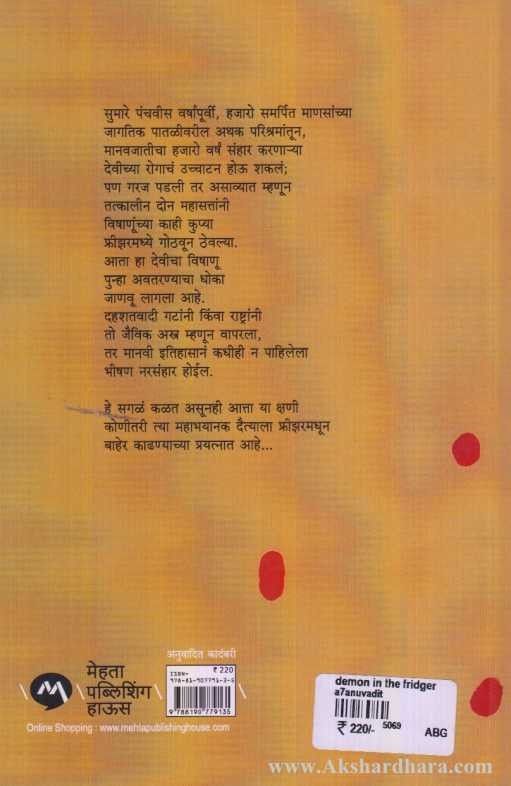 सुमारे पंचवीस वर्षांपूर्वी, हजारो समर्पित माणसांच्या
जागतिक पातळीवरील अथक परिश्रमांतून,
मानवजातीचा हजारो वर्षं संहार करणाऱ्या
देवीच्या रोगाचं उच्चाटन होऊ शकलं;
पण गरज पडली तर असाव्यात म्हणून
तत्कालीन दोन महासत्तांनी
विषाणूंच्या काही कुप्या
फ्रीझरमध्ये गोठवून ठेवल्या.
आता हा देवीचा विषाणू
पुन्हा अवतरण्याचा धोका
जाणवू लागला आहे.
दहशतवादी गटांनी किंवा राष्ट्रांनी
तो जैविक अस्त्र म्हणून वापरला,
तर मानवी इतिहासानं कधीही न पाहिलेला
भीषण नरसंहार होईल.
हे सगळं कळत असूनही आत्ता या क्षणी
कोणीतरी त्या महाभयानक दैत्याला फ्रीझरमधून
बाहेर काढण्याच्या प्रयत्नात आहे...
अनुवादित कादंबरी
मेहता
पब्लिशिंग
हाऊस
Online Shopping : www.mehtapublishinghouse.com
₹ 220
ISBN-
978-81-907791-3-5
9 788190 779135
demon in the fridger
a7anuvadit
₹ 220/- 5069 ABG
www.Akshardhara.com